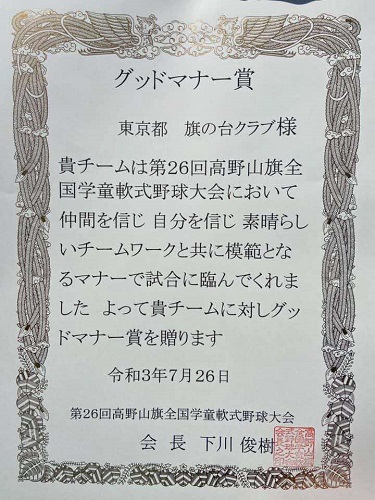 グッドマナー賞
東京都　旗の台クラブ様
貴チームは第26回高野山旗全
国学童軟式野球大会において
仲間を信じ 自分を信じ 素晴らし
いチームワークと共に模範とな
るマナーで試合に臨んでくれま
した よって貴チームに対しグッ
ドマナー賞を贈ります
令和3年7月26日
第26回高野山旗全国学童軟式野球大会
会 長 下川 俊樹